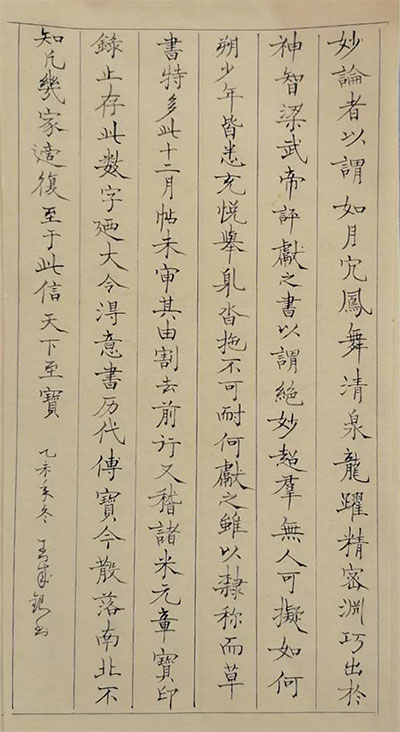 妙論者以謂如月穴鳳舞清泉龍躍精密淵巧出於
神智梁武帝評獻之書以謂絕妙超羣無人可擬如何
朔少年皆悉充悅舉沓拖不可耐何獻之雖以隸称而草
書特多此十二月帖未审其由割去前行又稽諸米元章寶印
錄止存此数字廼大令得意書历代傳寶今散落南北不
知凡幾家適復至于此信天下至寶
乙未冬